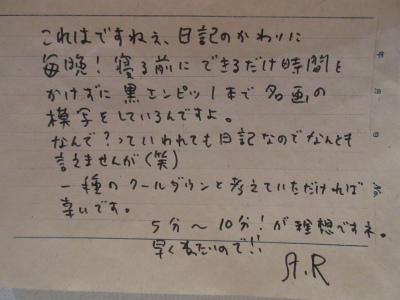 これはですねぇ、日記のかわりに
毎晩！寝る前にできるだけ時間を
かけずに黒エンピツ1本で名画の
模写をしているんですよ。
なんで？っていわれても日記なのでなんとも
言えませんが(笑)
一種のクールダウンと考えていただければ
幸いです。
5分〜10分！が理想ですネ。
早くねたいので!!
A.R
年 月 日
No